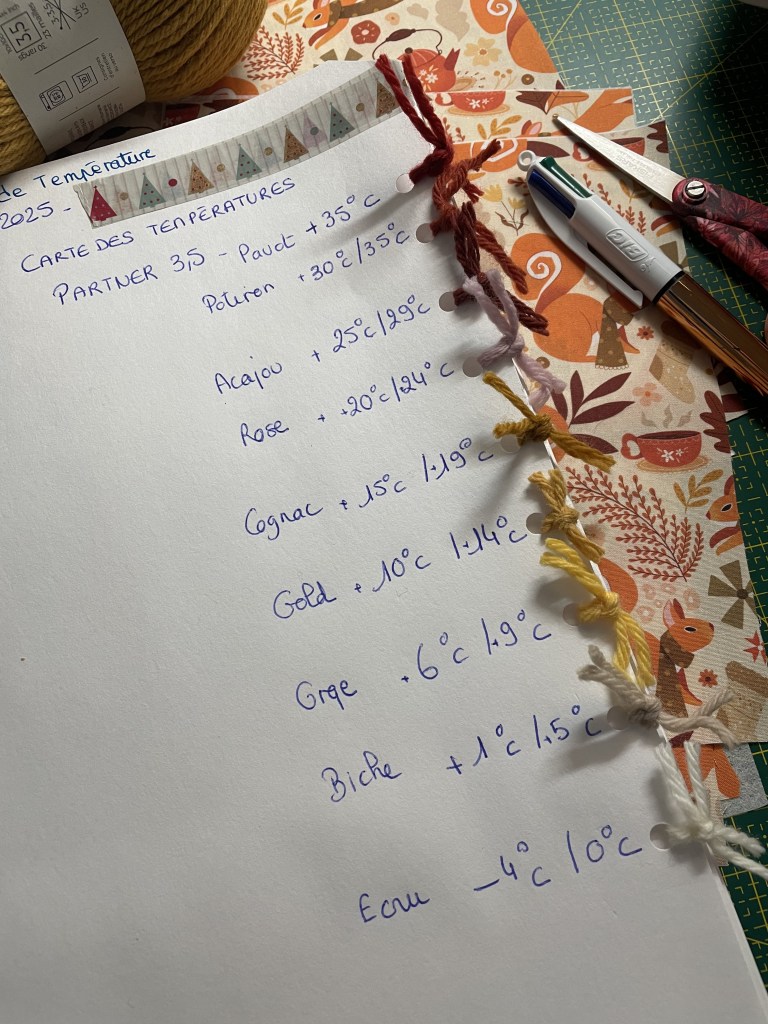 3,5
30 rangs
de Température
2025 -
CARTE DES TEMPÉRATURES
PARTNER 3,5 - Pavot +35°C
Potiron +30°C/35°C
Acajou + 25°C/29°C
Rose + +20°C/+24°C
Cognac + 15°C /+19°C
Gold + 10°C /+14°C
Grge +6°C /+9°C
Biche +1°C /+5°C
Ecru -4°C /0°C
BIC